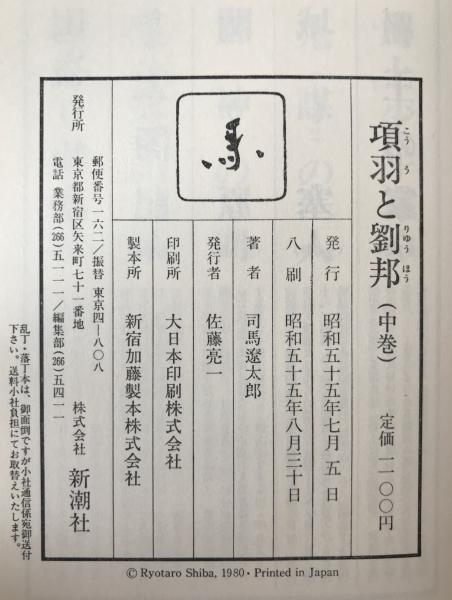 項羽と劉邦(中巻)
こうう
りゅうほう
定価 一一〇〇円
発行 昭和五十五年七月五日
八刷 昭和五十五年八月三十日
著者 司馬遼太郎
発行者 佐藤亮一
印刷所 大日本印刷株式会社
製本所 新宿加藤製本株式会社
発行所
郵便番号一六二/振替 東京四―八〇八
東京都新宿区矢来町七十一番地
電話 業務部(266)五一一一/編集部(266)五四一一
株式会社 新潮社
乱丁・落丁本は、御面倒ですが小社通信係宛御送付
下さい。送料小社負担にてお取替えいたします。
© Ryotaro Shiba, 1980・Printed in Japan